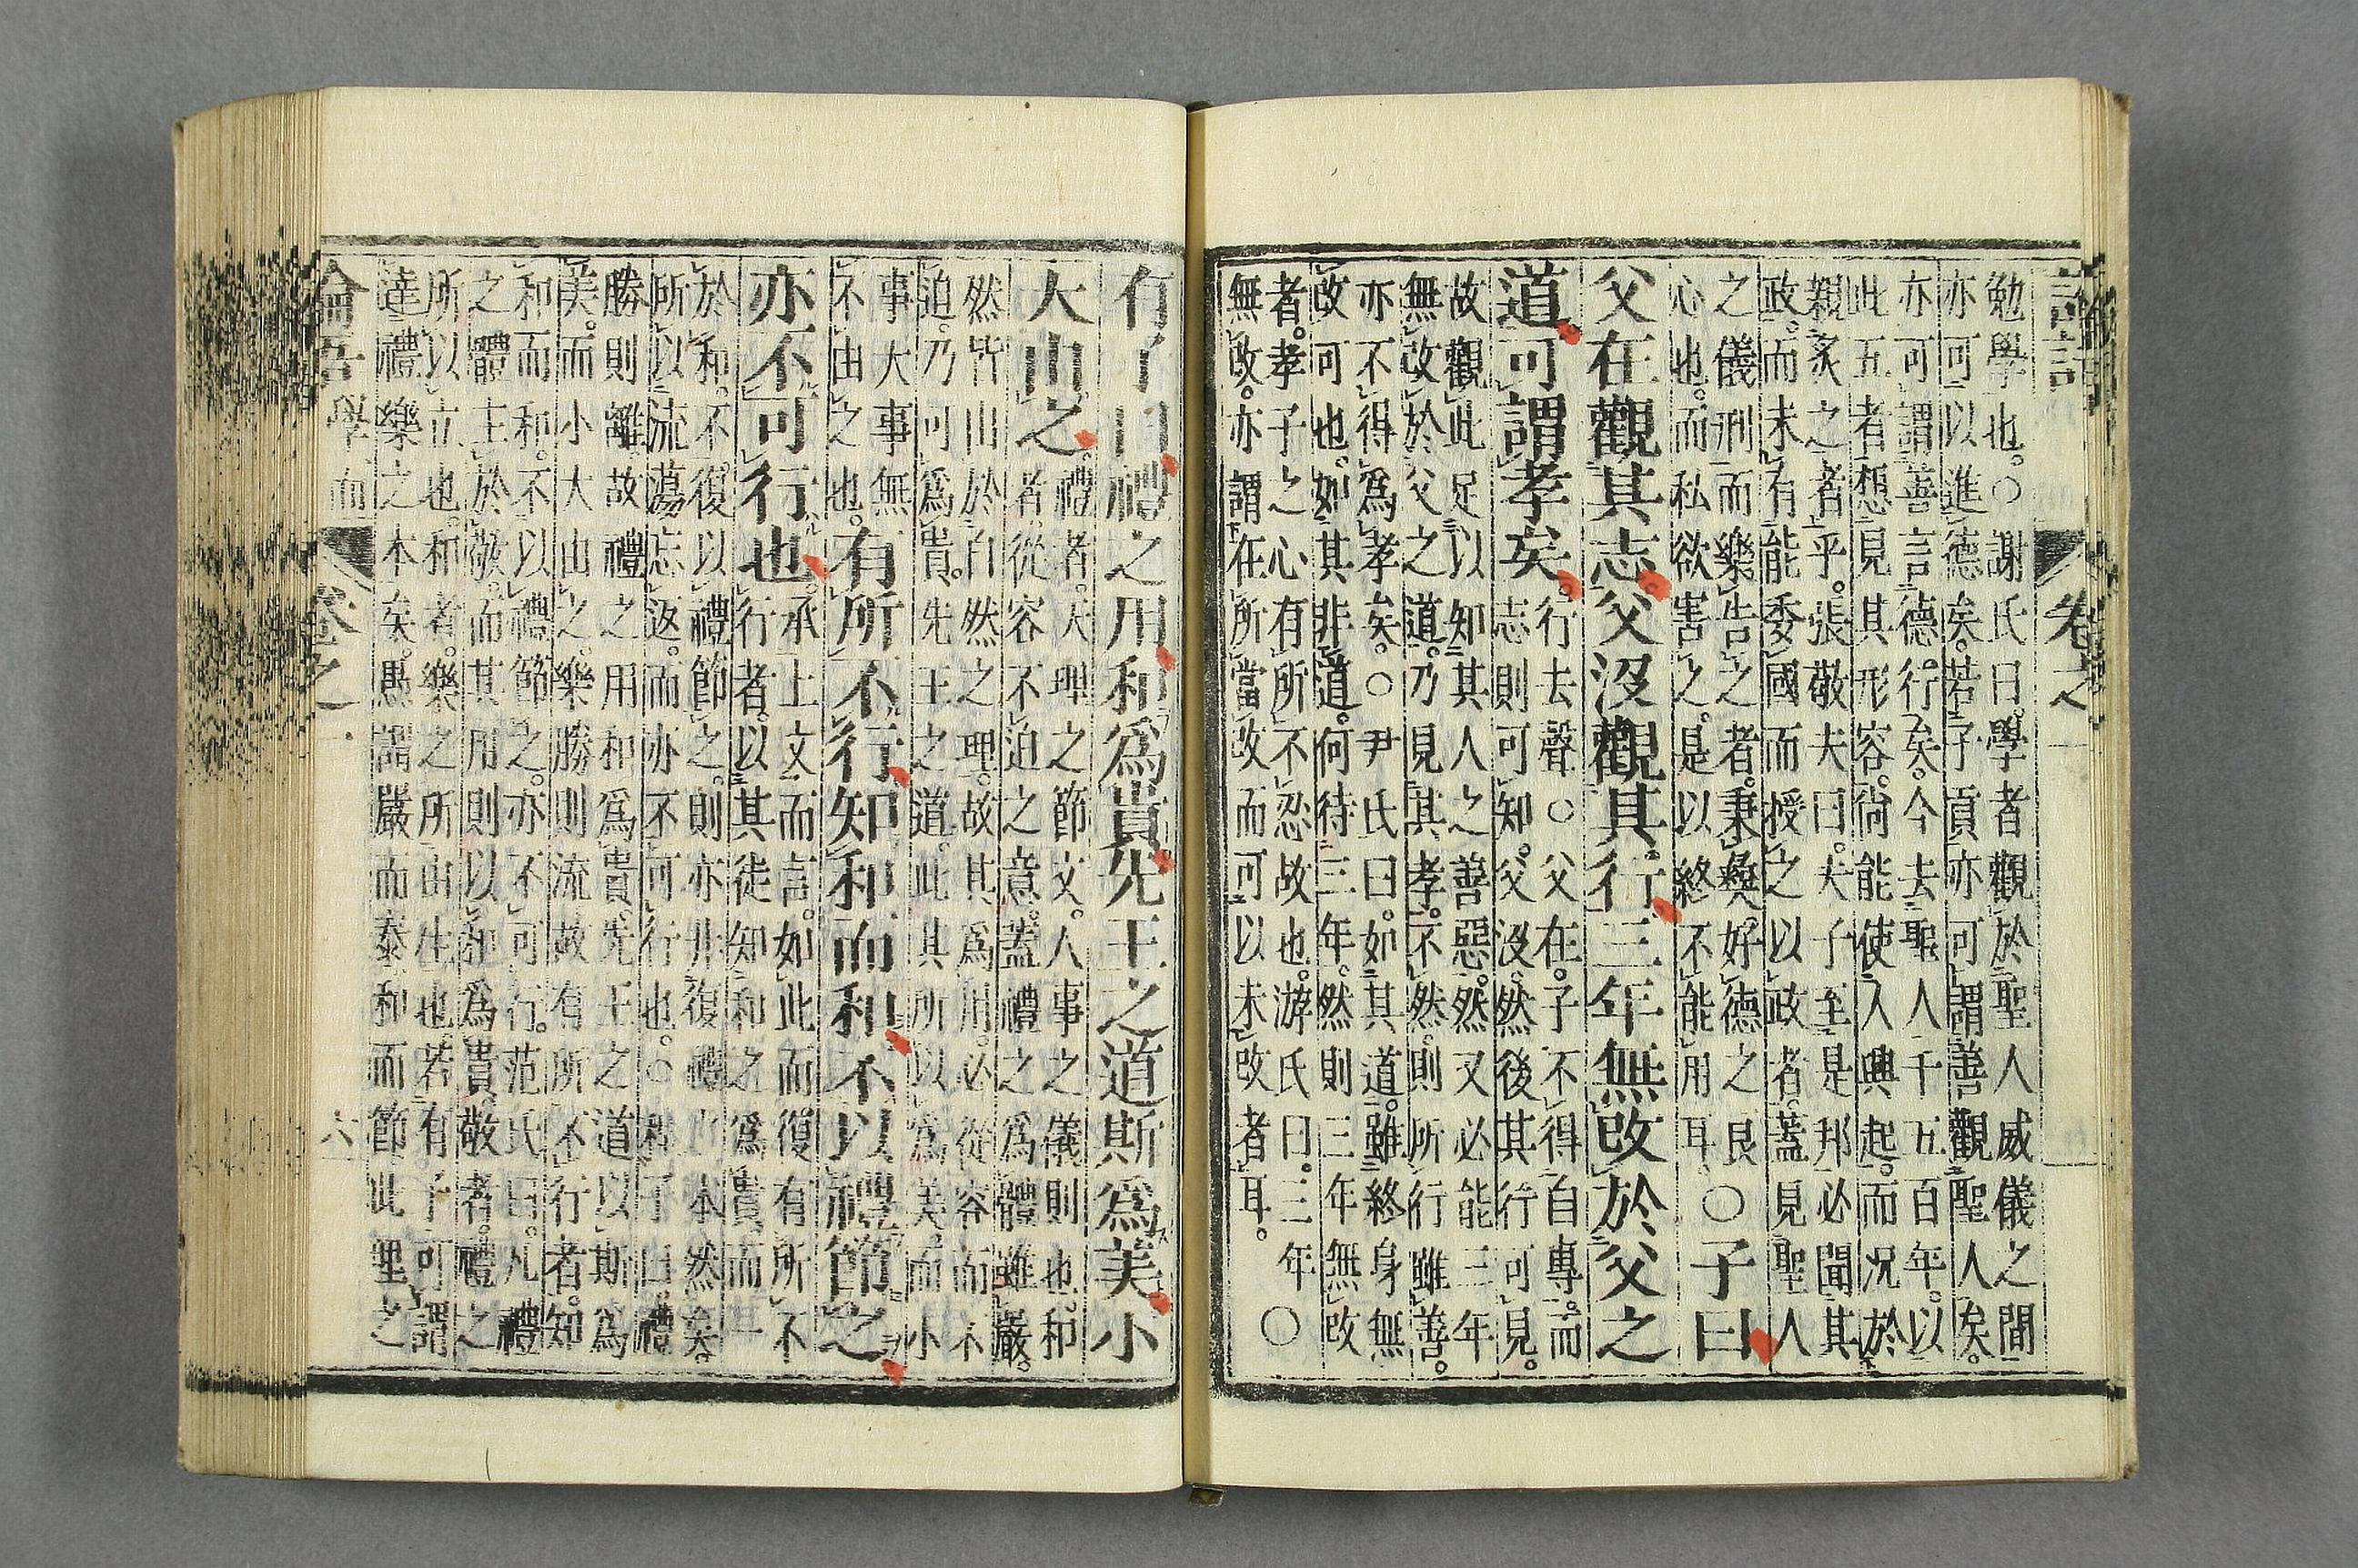 語
卷之一
勉學也。○謝氏曰。學者觀於聖人威儀之間
亦可以進德矣。若子貢亦可謂善觀聖人矣。
亦可謂善言德行矣。今去聖人千五百年。以
此五者想見其形容。尚能使人興起。而況於
親炙之者乎。張敬夫曰。夫子至是邦必聞其
政。而未有能委國而授之以政者。蓋見聖人
之儀刑而樂告之者。秉彝好德之良
心也。而私欲害之。是以終不能用耳。
○子曰
父在觀其志。父沒觀其行。三年無改於父之
道。可謂孝矣。
行去聲○父在。子不得自專。而
志則可知。父沒。然後其行可見。
故觀此足以知其人之善惡。然又必能三年
無改於父之道。乃見其孝。不然。則所行雖善。
亦不得爲孝矣。○尹氏曰。如其道。雖終身無
改可也。如其非道。何待三年。然則三年無改
者。孝子之心有所不忍故也。游氏曰。三年
無改。亦謂在所當改而可以未改者耳。
○
有子曰禮之用和爲貴先王之道斯爲美小
大由之。
禮者。天理之節文。人事之儀則也。和
者。從容不迫之意。蓋禮之爲體雖嚴。
然皆出於自然之理。故其爲用。必從容而不
迫。乃可爲貴。先王之道。此其所以爲美。而小
事大事無
不由之也。
有所不行知和而和不以禮節之
亦不可行也。
承上文而言。如此而復有所不
行者。以其徒知和之爲貴。而一
於和。不復以禮節之。則亦非復禮之本然矣。
所以流蕩忘返。而亦不可行也。○程子曰。禮
勝則離。故禮之用和爲貴。先王之道以斯爲
美。而小大由之。樂勝則流。故有所不行者。知
和而和。不以禮節之。亦不可行。范氏曰。凡禮
之體主於敬。而其用則以和爲貴。敬者。禮之
所以立也。和者。樂之所由生也。若有子可謂
達禮樂之本矣。愚謂嚴而泰和而節此理之
論語學而
卷之一
六